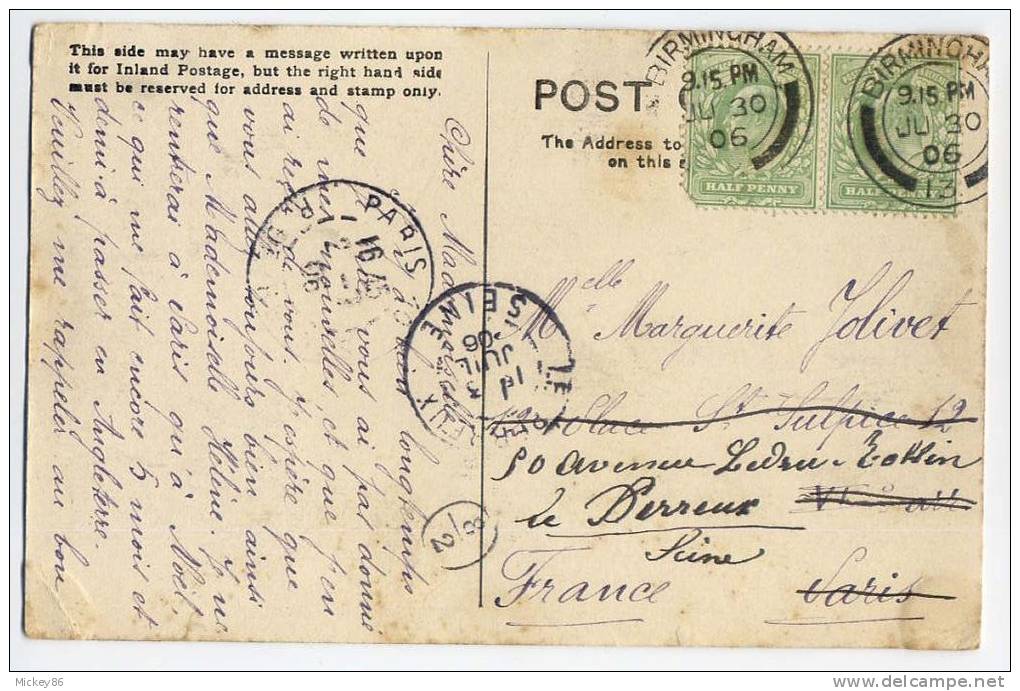 This side may have a message written upon
it for Inland Postage, but the right hand side
must be reserved for address and stamp only.
POST
The Address to
on this s
BIRMINGHAM
9.15 PM
JU 30
06
HALF PENNY
BIRMINGHAM
9.15 PM
JU 30
06
13
HALF PENNY
Chère Mademoiselle
Il y a bien longtemps
que je ne vous ai pas donné
de mes nouvelles et que j'en
ai reçu de vous. J'espère que
vous allez toujours bien ainsi
que Mademoiselle Hélène. Je ne
rentrerai à Paris qu'à Noël.
ce qui me fait encore 5 mois et
demi à passer en Angleterre.
Veuillez me rappeler au bon
PARIS
SEINE
JUIL
06
2/8
Melle Marguerite Jolivet
Place St Sulpice 12
50 Avenue Ledru-Rollin
Le Perreux
Seine
France
Paris
Mickey86
delcampe.net